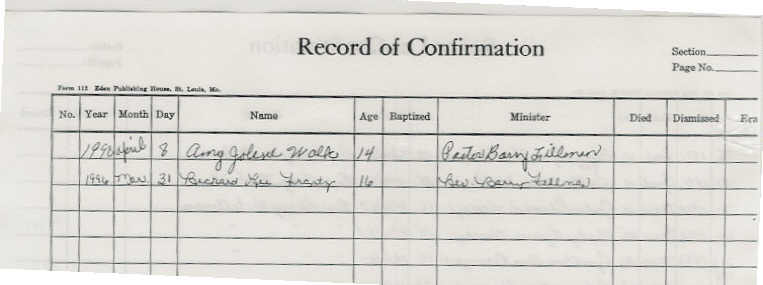 Record of Confirmation
Section
Page No.
Form 112 Eden Publishing House, St. Louis, Mo.
No. Year Month Day Name Age Baptized Minister Died Dismissed Era
1990 April 8 Amy Jolene Wolk 14 Pastor Barry Fillmer
1996 Mar 31 Richard Lee Frantz 16 Rev. Barry Fellmer